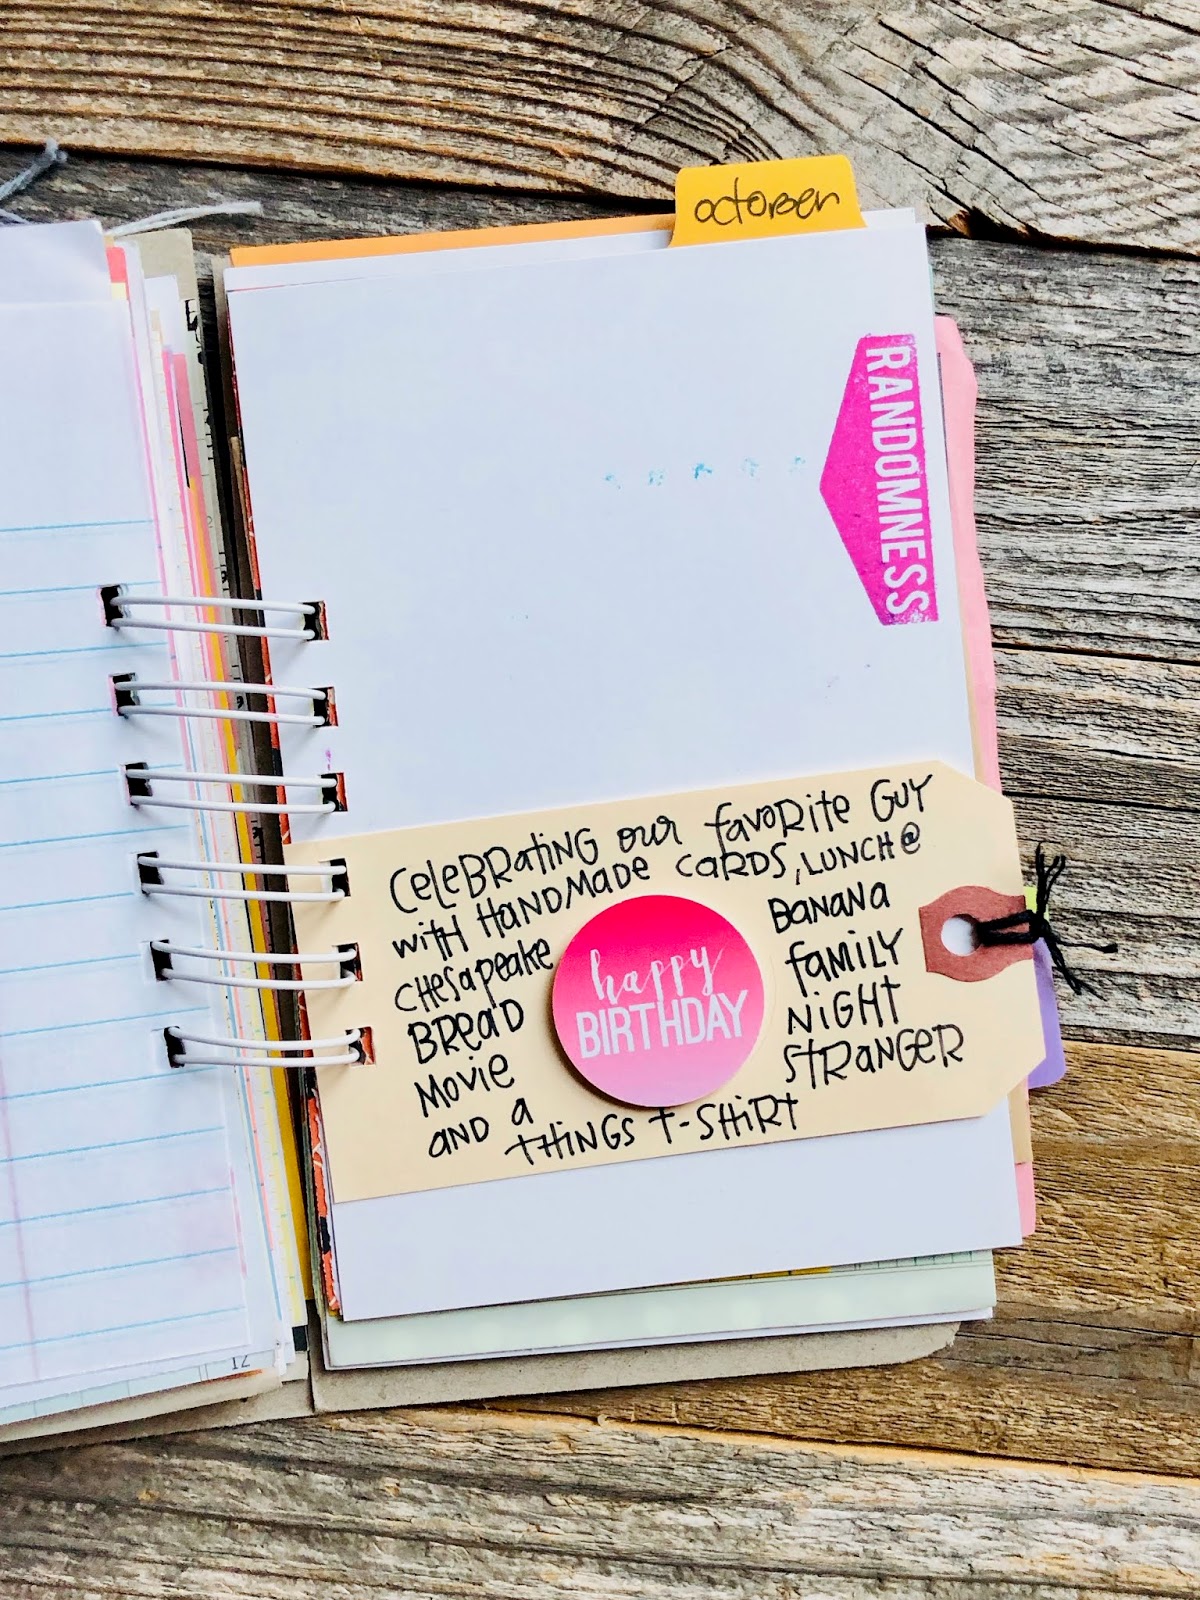 october
RANDOMNESS
CELEBRATING OUR FAVORITE GUY
WITH HANDMADE CARDS, LUNCH @
CHESAPEAKE BANANA
BREAD FAMILY
MOVIE NIGHT
AND A STRANGER
THINGS T-SHIRT
happy
BIRTHDAY
12